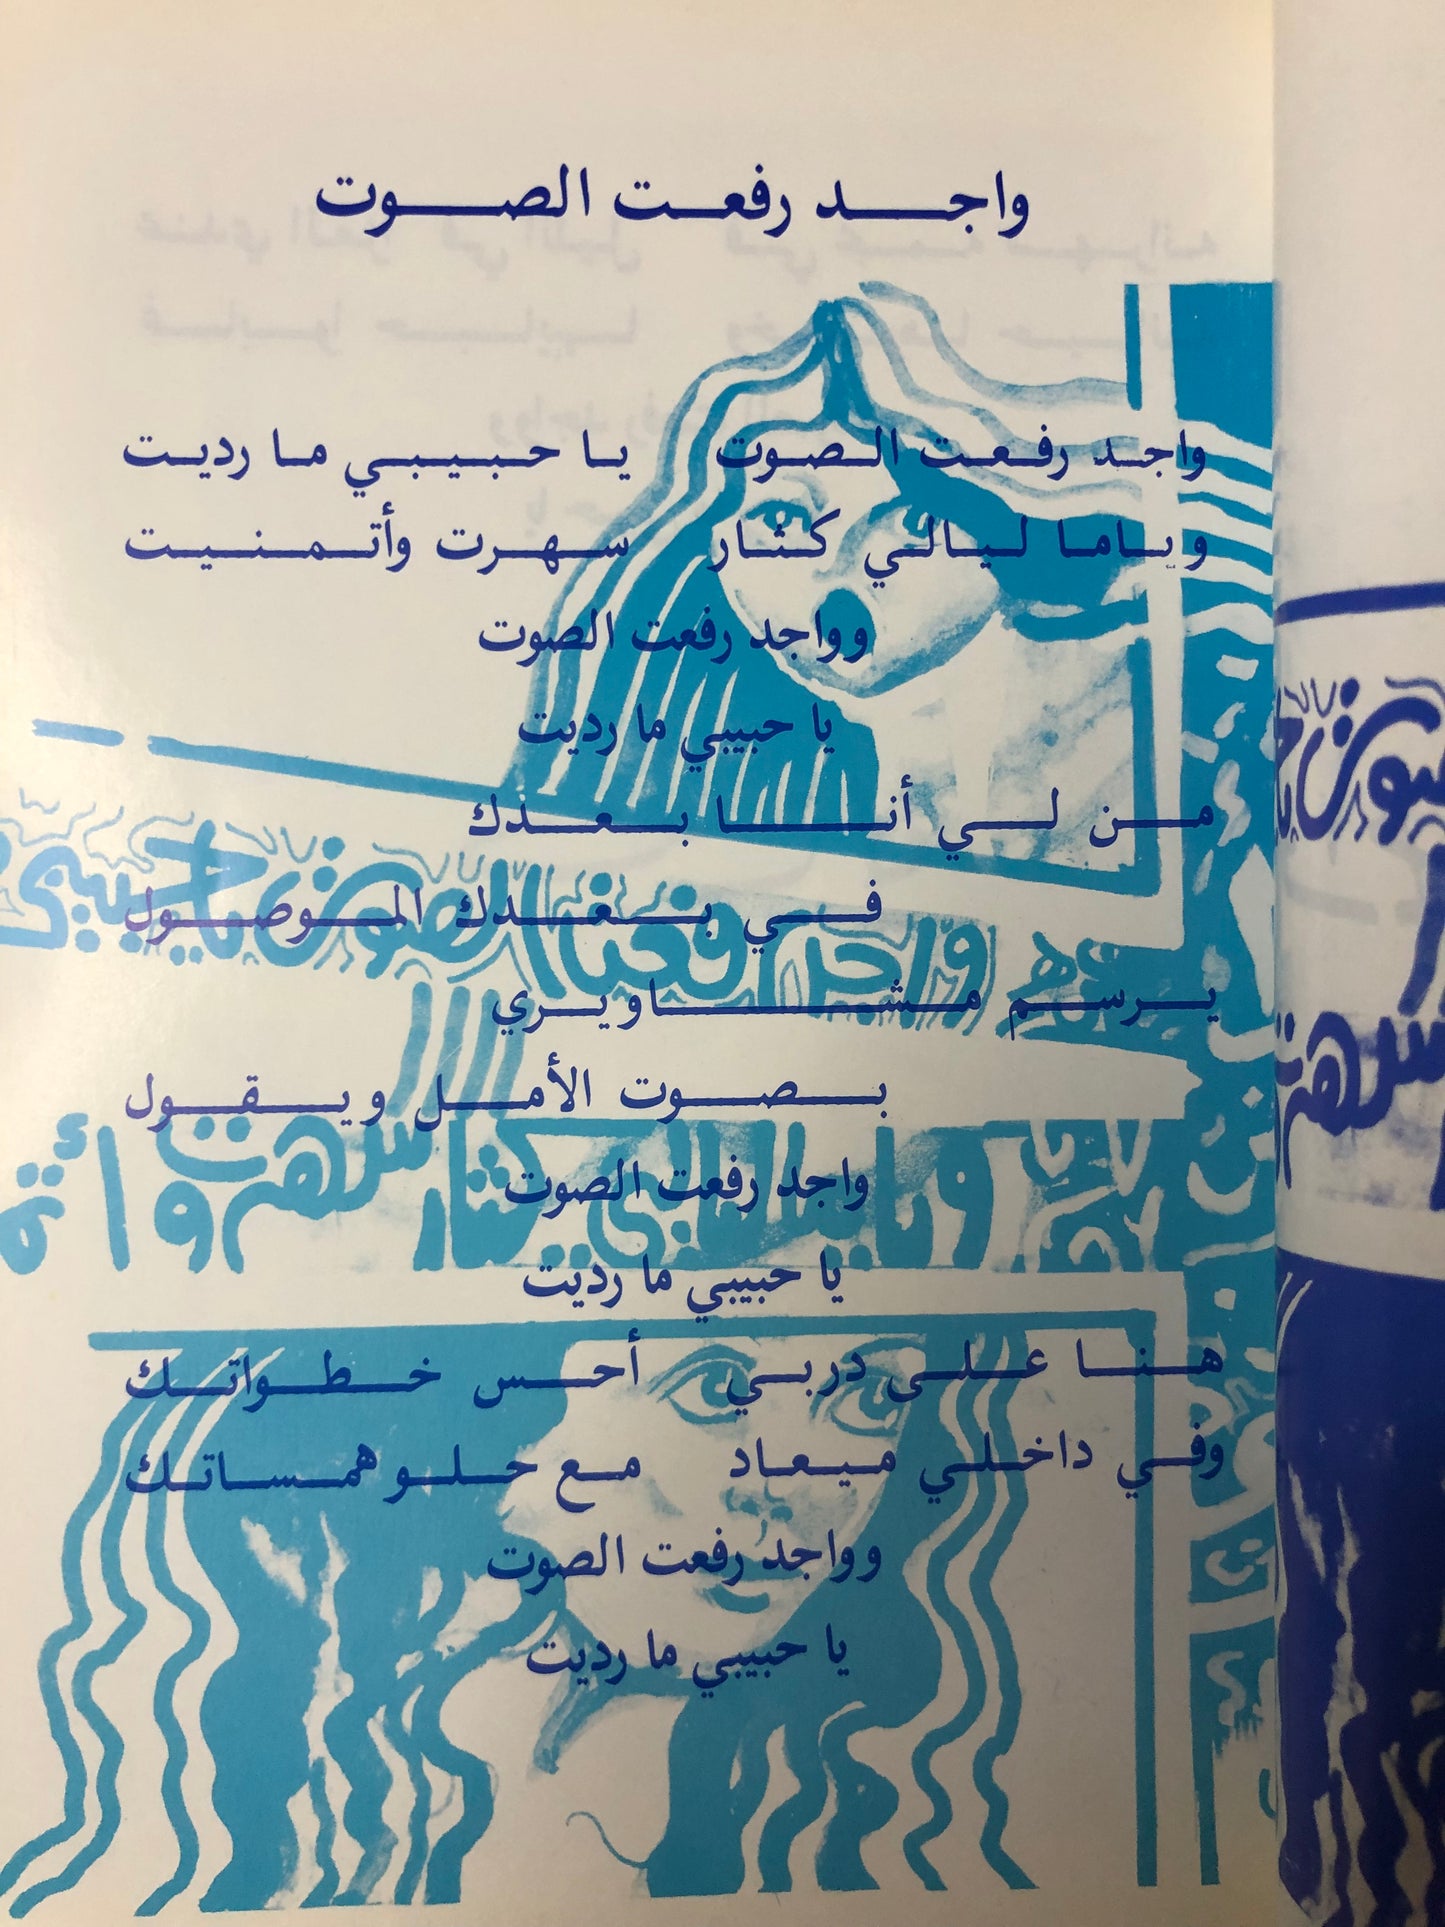 واجد رفعت الصوت
واجد رفعت الصوت يا حبيبي ما رديت
وياما ليالي كثار سهرت وأتمنيت
وواجد رفعت الصوت
يا حبيبي ما رديت
من لي أنا بعدك
في بعدك الموصول
يرسم مشاويري
بصوت الأمل ويقول
واجد رفعت الصوت
يا حبيبي ما رديت
هنا على دربي أحس خطواتك
وفي داخلي ميعاد مع حلو همساتك
وواجد رفعت الصوت
يا حبيبي ما رديت
واجد رفعت الصوت يا حبيبي
وياما ليالي كثار سهرت وأتم